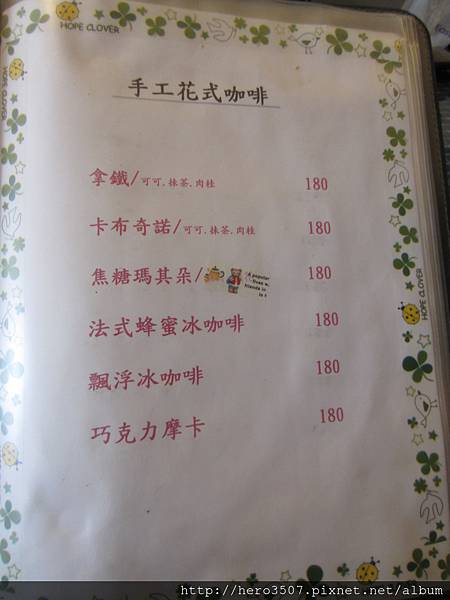 HOPE CLOVER
手工花式咖啡
拿鐵/可可.抹茶.肉桂 180
卡布奇諾/可可.抹茶.肉桂 180
焦糖瑪其朵/ 180
A popular
friends in
法式蜂蜜冰咖啡 180
飄浮冰咖啡 180
巧克力摩卡 180
HOPE CLOVER
http://hero3507.pixnet.net/album